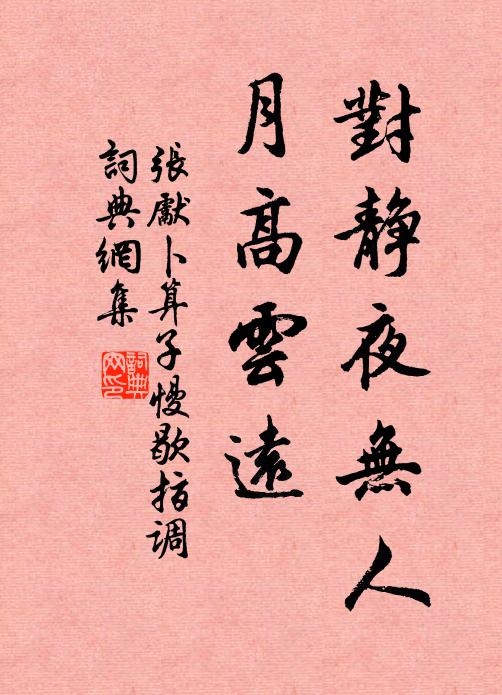 對静夜無人
月高雲遠
張獻卜算子慢歇指调
詞典網集
詞典网印